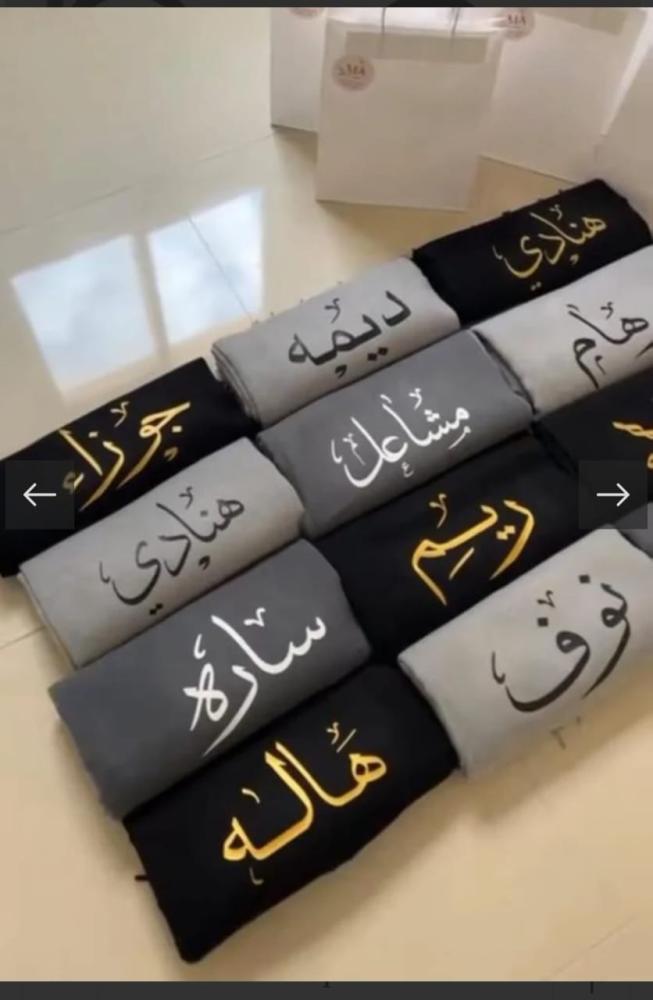 هنادي
ديمه
رهام
جوزاء
مشاعل
هنادي
ريم
ساره
نوف
هاله